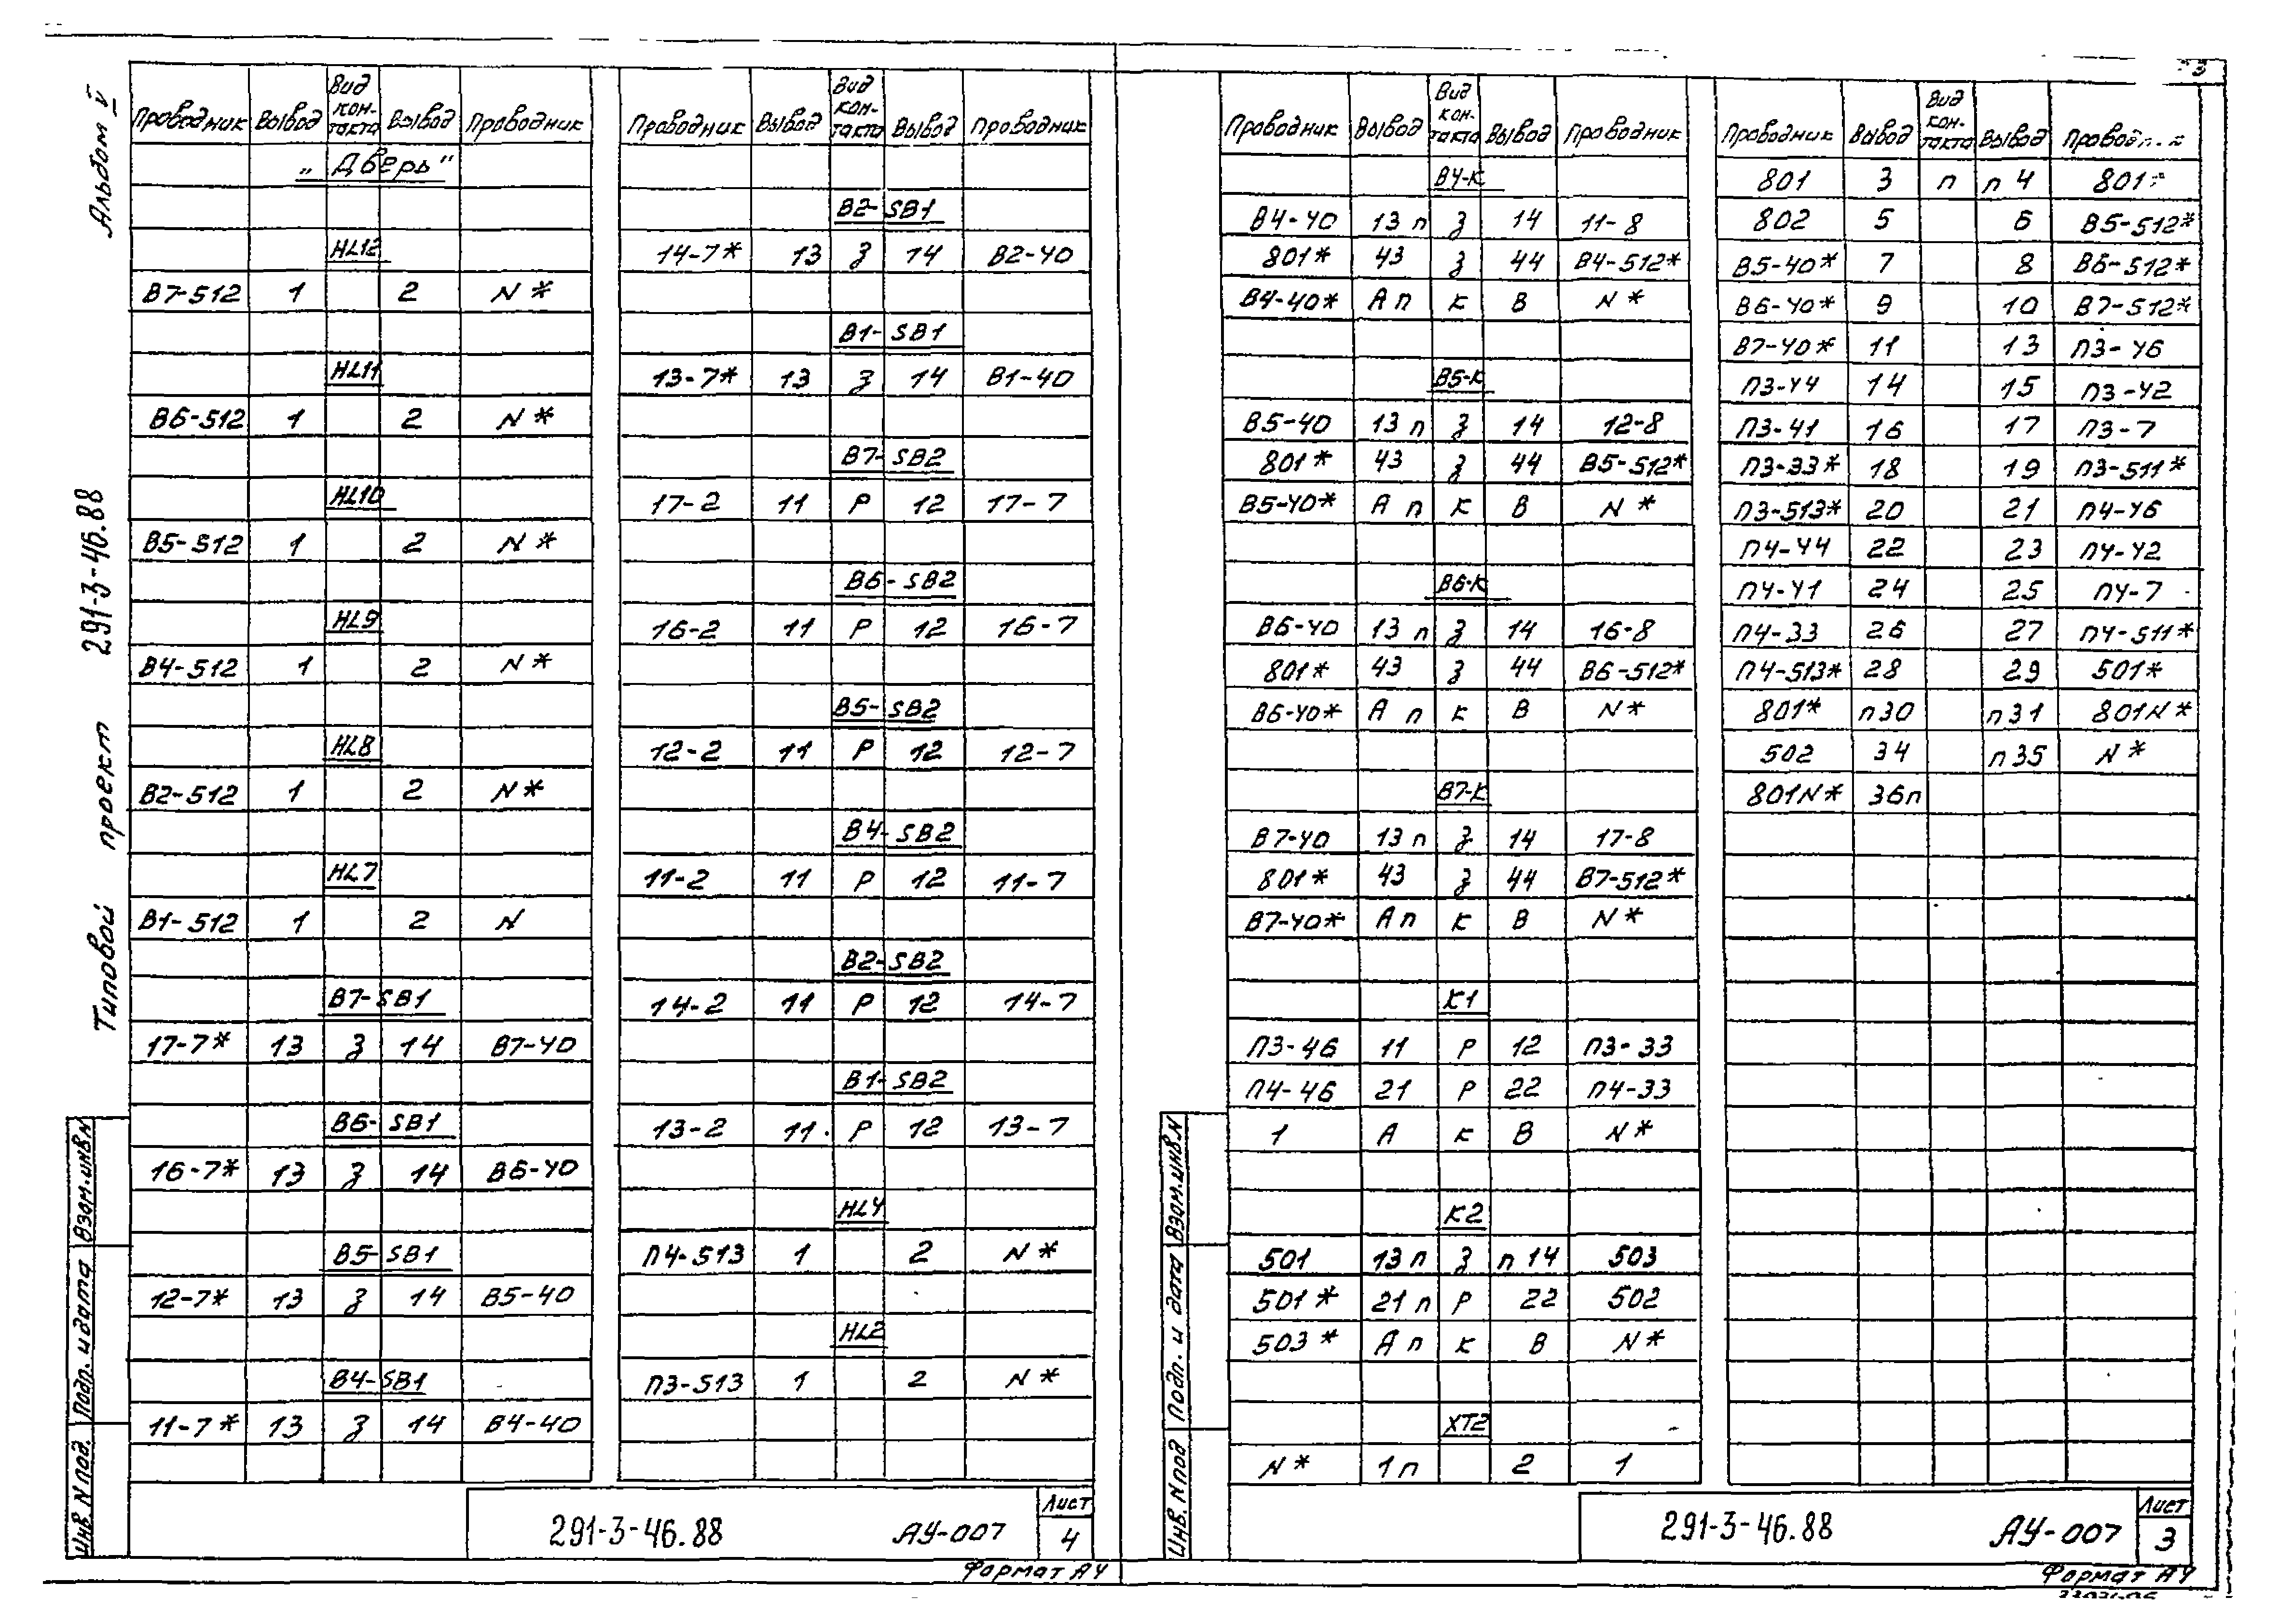 Альбом V
Типовой проект 291-3-46.88
Проводник Вывод Вид кон-такта Вывод Проводник
„Дверь"
HL12
В7-512 1 2 N*
HL11
В6-512 1 2 N*
HL10
В5-512 1 2 N*
HL9
В4-512 1 2 N*
HL8
В2-512 1 2 N*
HL7
В1-512 1 2 N
В7-SB1
17-7* 13 З 14 В7-40
В6-SB1
16-7* 13 З 14 В6-40
В5-SB1
12-7* 13 З 14 В5-40
В4-SB1
11-7* 13 З 14 В4-40
Проводник Вывод Вид кон-такта Вывод Проводник
В2-SB1
14-7* 13 З 14 В2-40
В1-SB1
13-7* 13 З 14 В1-40
В7-SB2
17-2 11 Р 12 17-7
В6-SB2
16-2 11 Р 12 16-7
В5-SB2
12-2 11 Р 12 12-7
В4-SB2
11-2 11 Р 12 11-7
В2-SB2
14-2 11 Р 12 14-7
В1-SB2
13-2 11 Р 12 13-7
HL4
П4-513 1 2 N*
HL2
П3-513 1 2 N*
Инв. N под. Подп. и дата Взам. инв. N
291-3-46.88 АУ-007 Лист 4
Формат А4
Проводник Вывод Вид кон-такта Вывод Проводник
В4-К
В4-40 13 п З 14 11-8
801* 43 З 44 В4-512*
В4-40* А п К В N*
В5-К
В5-40 13 п З 14 12-8
801* 43 З 44 В5-512*
В5-40* А п К В N*
В6-К
В6-40 13 п З 14 16-8
801* 43 З 44 В6-512*
В6-40* А п К В N*
В7-К
В7-40 13 п З 14 17-8
801* 43 З 44 В7-512*
В7-40* А п К В N*
К1
П3-46 11 Р 12 П3-33
П4-46 21 Р 22 П4-33
1 А К В N*
К2
501 13 п З п 14 503
501* 21 п Р 22 502
503* А п К В N*
ХТ2
N* 1 п 2 1
3
Проводник Вывод Вид кон-такта Вывод
801 3 п п 4 801*
802 5 6 В5-512*
В5-40* 7 8 В6-512*
В6-40* 9 10 В7-512*
В7-40* 11 13 П3-46
П3-44 14 15 П3-42
П3-41 16 17 П3-7
П3-33* 18 19 П3-511*
П3-513* 20 21 П4-46
П4-44 22 23 П4-42
П4-41 24 25 П4-7
П4-33 26 27 П4-511*
П4-513* 28 29 501*
801* п30 п31 801N*
502 34 п35 N*
801N* 36п
Инв. N под Подп. и дата Взам. инв. N
291-3-46.88 АУ-007 Лист 3
Формат А4